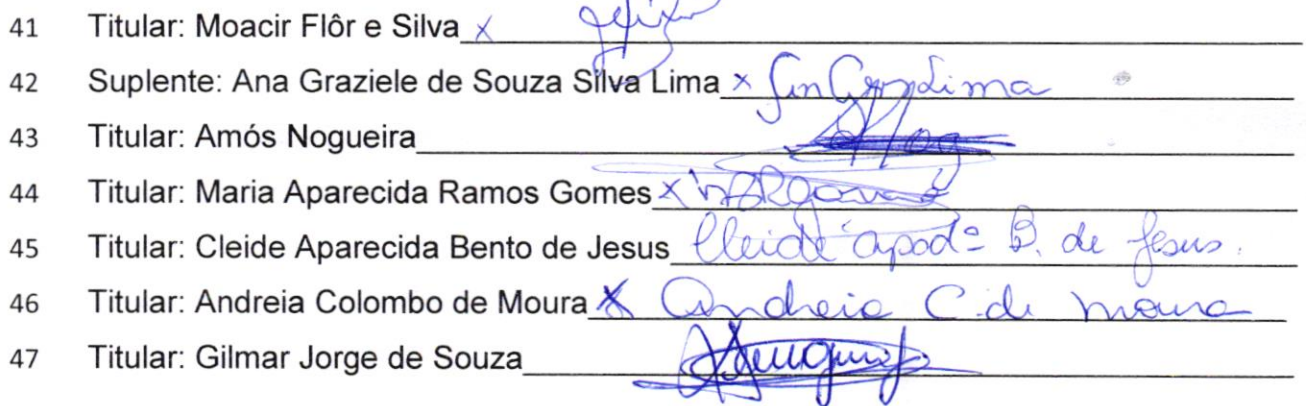 41 Titular: Moacir Flôr e Silva x
42 Suplente: Ana Graziele de Souza Silva Lima x Lima
43 Titular: Amós Nogueira
44 Titular: Maria Aparecida Ramos Gomes x
45 Titular: Cleide Aparecida Bento de Jesus Cleide apadª B. de Jesus.
46 Titular: Andreia Colombo de Moura x Andreia C. de Moura
47 Titular: Gilmar Jorge de Souza